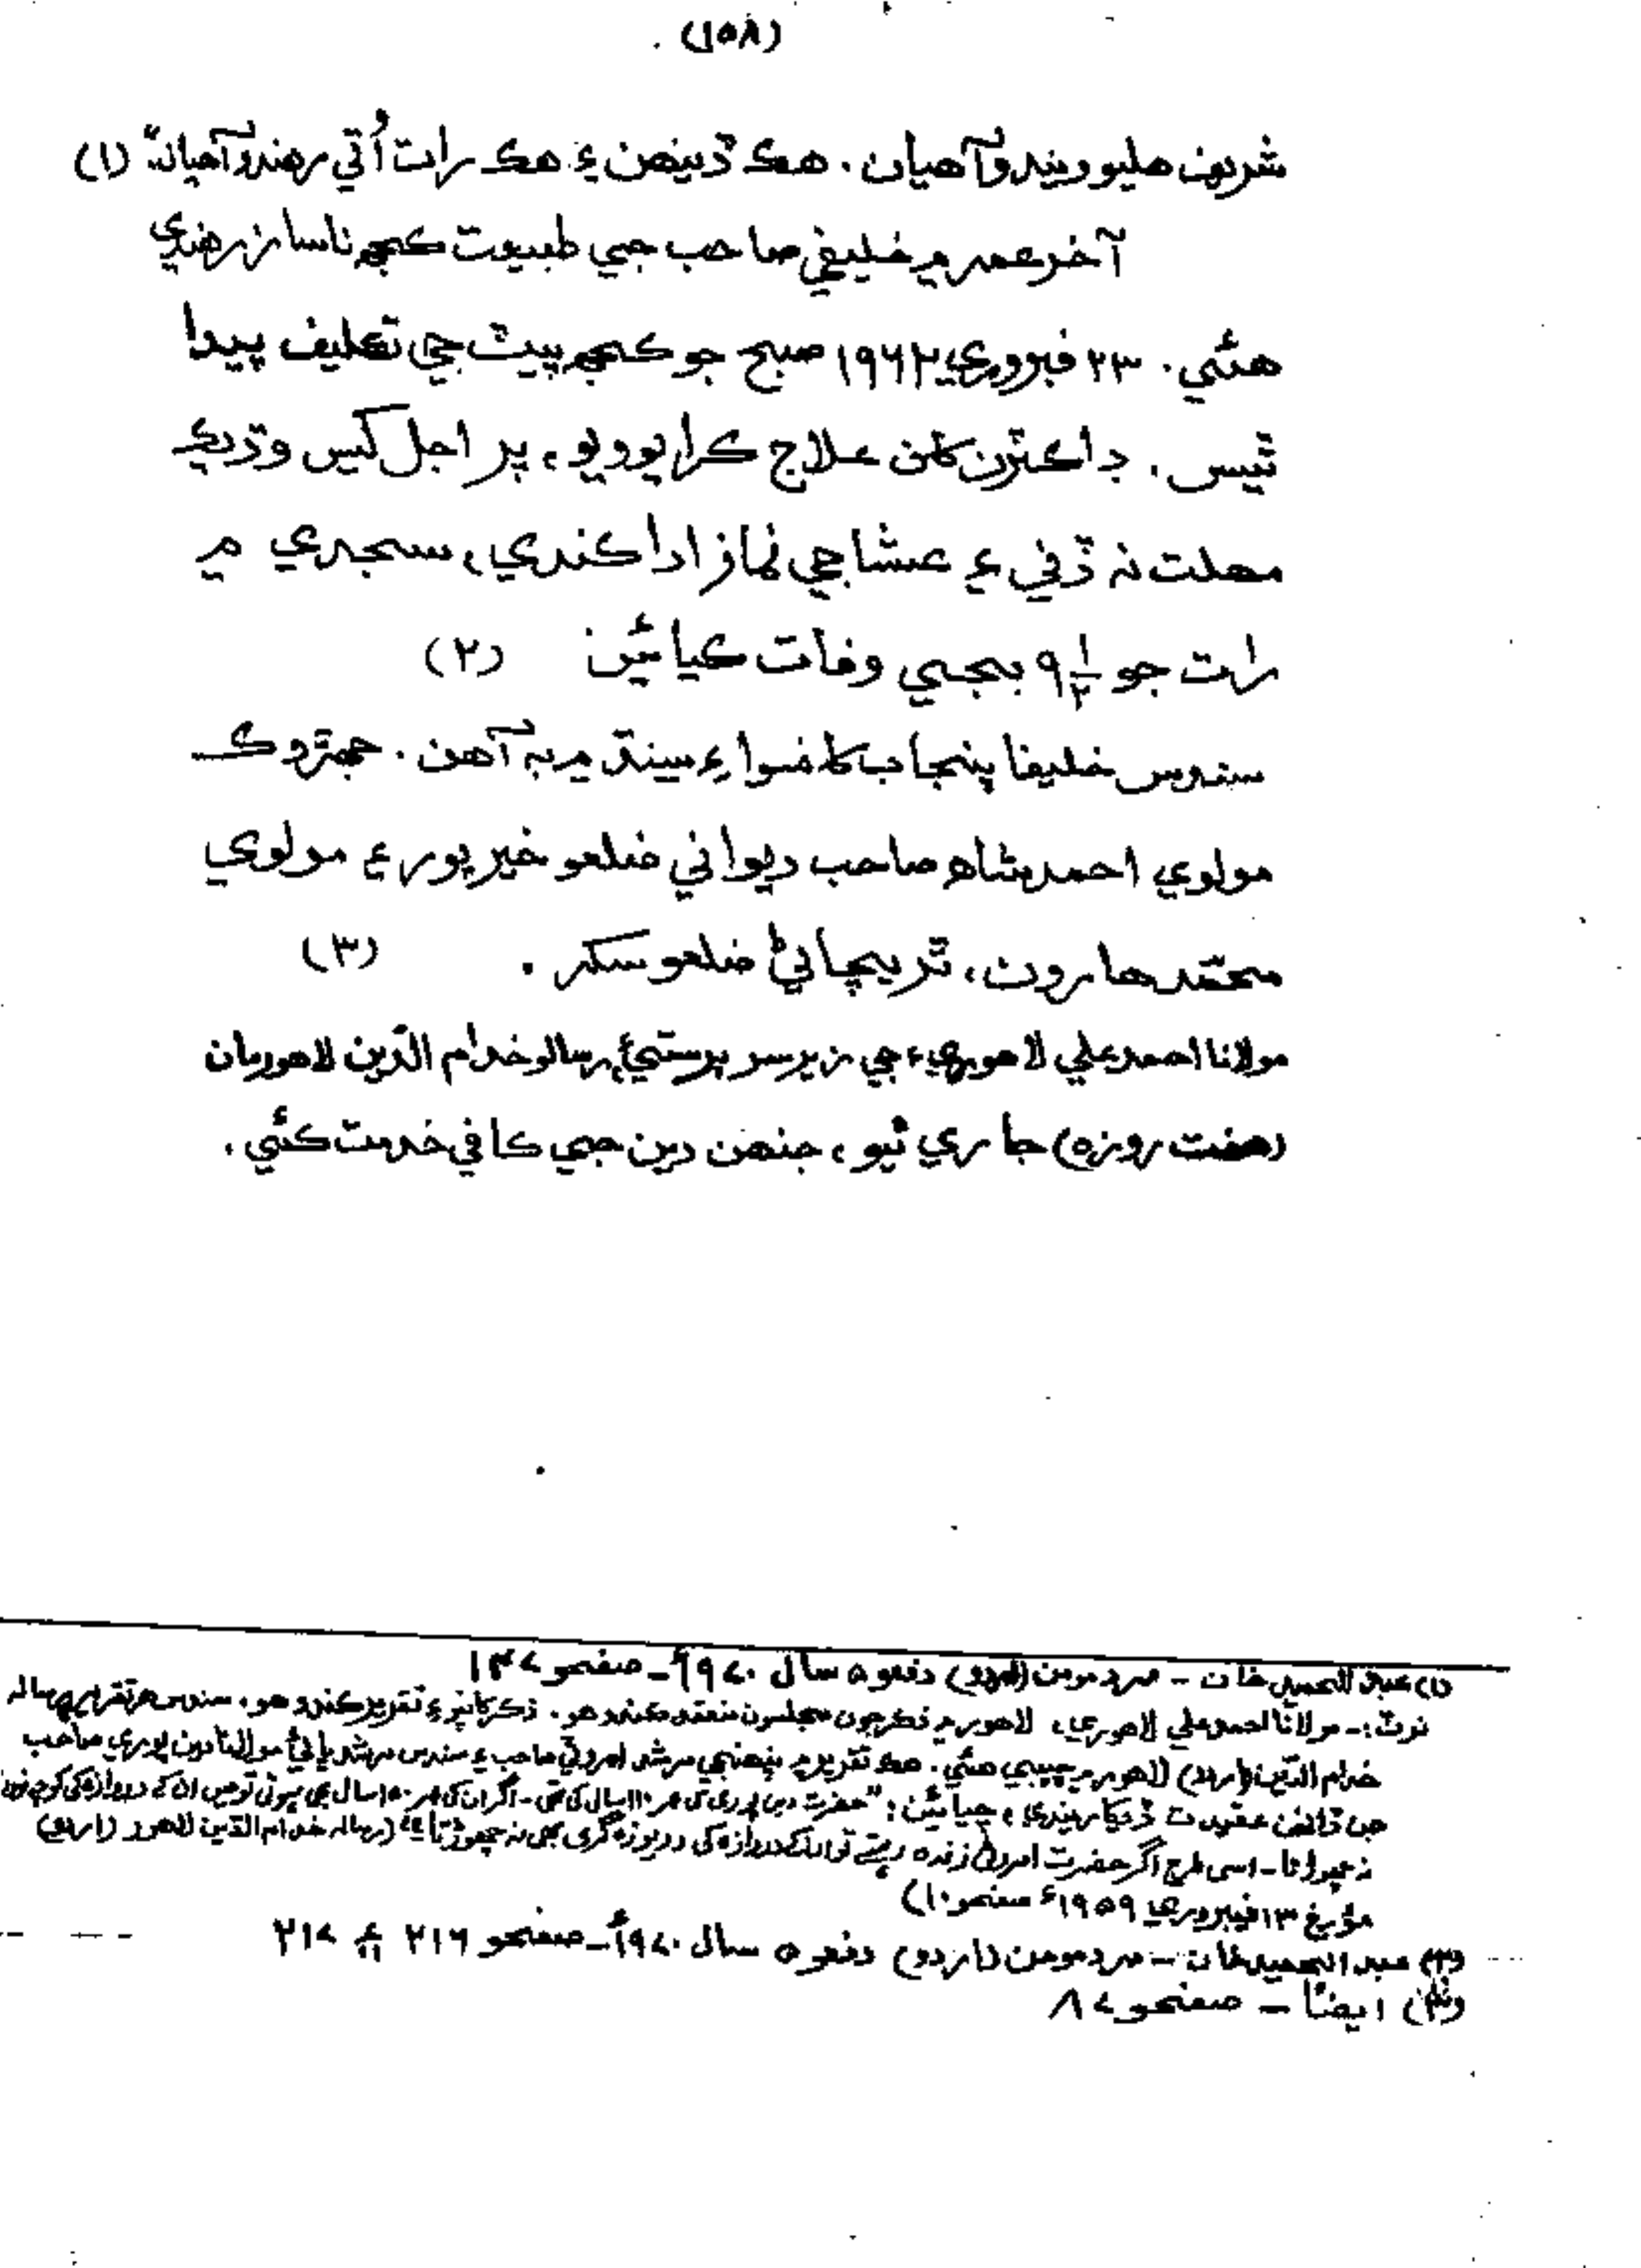 (١٥٨)
شريف هليو ويندو آهيان. هڪ ڏينهن ۽ هڪ رات اُتي رهندو آهيان” (١)
آخر عمر ۾ خليفي صاحب جي طبيعت ڪجهه ناساز رهندي
هئي. ٢٣ فيبروري ١٩٦٢ صبح جو ڪجهه پيٽ جي تڪليف پيدا
ٿيس. ڊاڪٽرن کان علاج ڪرايو ويو، پر اجل کيس وڌيڪ
مهلت نه ڏني ۽ عشا جي نماز ادا ڪندي، سجدي ۾
رات جو ٩½ بجي وفات ڪيائين (٢)
سندس خليفا پنجاب کان سواءِ سنڌ ۾ به آهن. جهڙوڪ
مولوي احمد شاهه صاحب ديواني ضلعو خيرپور ۽ مولوي
محمّد هارون، ٿريچاڻي ضلعو سکر. (٣)
مولانا احمد علي لاهوريءَ جي زير سرپرستيءَ رسالو خدام الدّين لاهور مان
(هفت روزه) جاري ٿيو، جنهن دين جي ڪافي خدمت ڪئي.
(١) عبد الحميد خان - مرد مومن (اردو) دفعو ٥ سال ١٩٧٠ع - صفحو ١٣٧
نوٽ:- مولانا احمد علي لاهوري، لاهور ۾ ذڪر جون مجلسون منعقد ڪندو هو. ذڪر کانپوءِ تقرير ڪندو هو. سندس هر تقرير رساله
خدام الدّين (اردو) لاهور ۾ ڇپبي هئي. هڪ تقرير ۾ پنهنجي مرشد امروٽي صاحب ۽ سندس مرشد ڀائيءَ مولانا دين پوري صاحب
جن ڏانهن عقيدت ڏيکاريندي، چيائين: ”حضرت دين پوری کی عمر ١١٠ سال کی تھی - اگر ان کی عمر ١٥٠ سال بھی ہوتی تو میں ان کے دروازہ کی
نہ چھوڑتا - اسی طرح اگر حضرت امروٹی زندہ رہتے تو ان کے دروازہ کی دریوزہ گری بھی نہ چھوڑتا“ (رسالہ خدام الدّين لاهور (اردو)
مؤرخ ١٣ فيبروري ١٩٥٩ع صفحو ١٠)
(٢) عبد الحميد خان - مرد مومن (اردو) دفعو ٥ سال ١٩٧٠ع - صفحو ٢١٦ ۽ ٢١٧
(٣) ايضاً - صفحو ٨٧